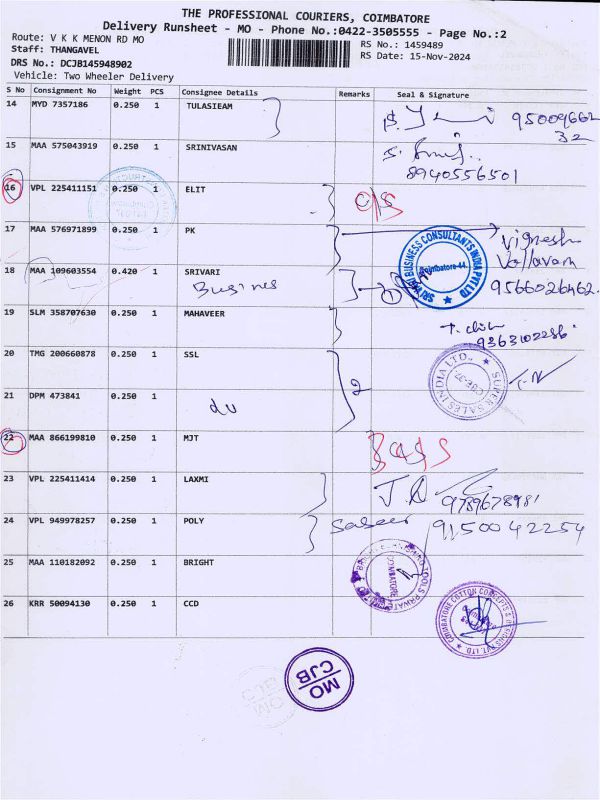 THE PROFESSIONAL COURIERS, COIMBATORE
Delivery Runsheet - MO - Phone No.:0422-3505555 - Page No.:2
Route: V K K MENON RD MO
RS No.: 1459489
Staff: THANGAVEL
RS Date: 15-Nov-2024
DRS No.: DCJB145948902
Vehicle: Two Wheeler Delivery
S No Consignment No Weight PCS Consignee Details Remarks Seal & Signature
14 MYD 7357186 0.250 1 TULASIEAM
15 MAA 575043919 0.250 1 SRINIVASAN
8940556501
16 VPL 225411151 0.250 1 ELIT
17 MAA 576971899 0.250 1 PK
Vignesh
18 MAA 109603554 0.420 1 SRIVARI
Busines
9566026462
SRI VARI BUSINESS CONSULTANTS INDIA PVT LTD
Coimbatore-44.
19 SLM 358707630 0.250 1 MAHAVEER
9363102286
20 TMG 200660878 0.250 1 SSL
SUPER SALES INDIA LTD.,
CBE-37
21 DPM 473841 0.250 1
du
2
22 MAA 866199810 0.250 1 MJT
23 VPL 225411414 0.250 1 LAXMI
9789678981
24 VPL 949978257 0.250 1 POLY
9150042254
25 MAA 110182092 0.250 1 BRIGHT
26 KRR 50094130 0.250 1 CCD
COIMBATORE COTTON CONCEPTS & DESIGNS PVT. LTD.
MO
CJB